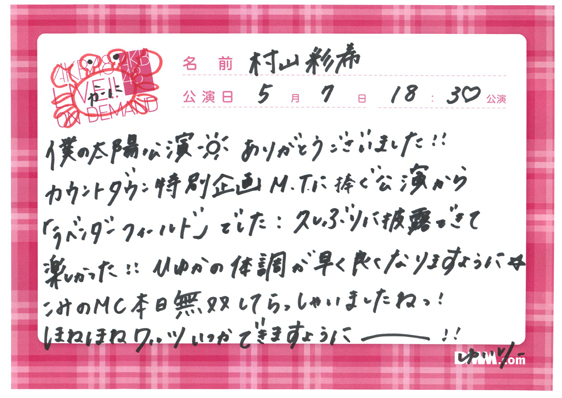 AKB48 LIVE!! ON DEMAND
かに
名前 村山彩希
公演日 5月7日 18:30♡公演
僕の太陽公演☀ありがとうございました!!
カウントダウン特別企画M.Tに捧ぐ公演から
「ラベンダーフィールド」でした:久しぶりに披露できて
楽しかった!!ひゆかの体調が早く良くなりますように☆
こみのMC本日無双してらっしゃいましたねっ!
ほねほねワルツいつかできますように―――!!
ゆいりー
DMM.com